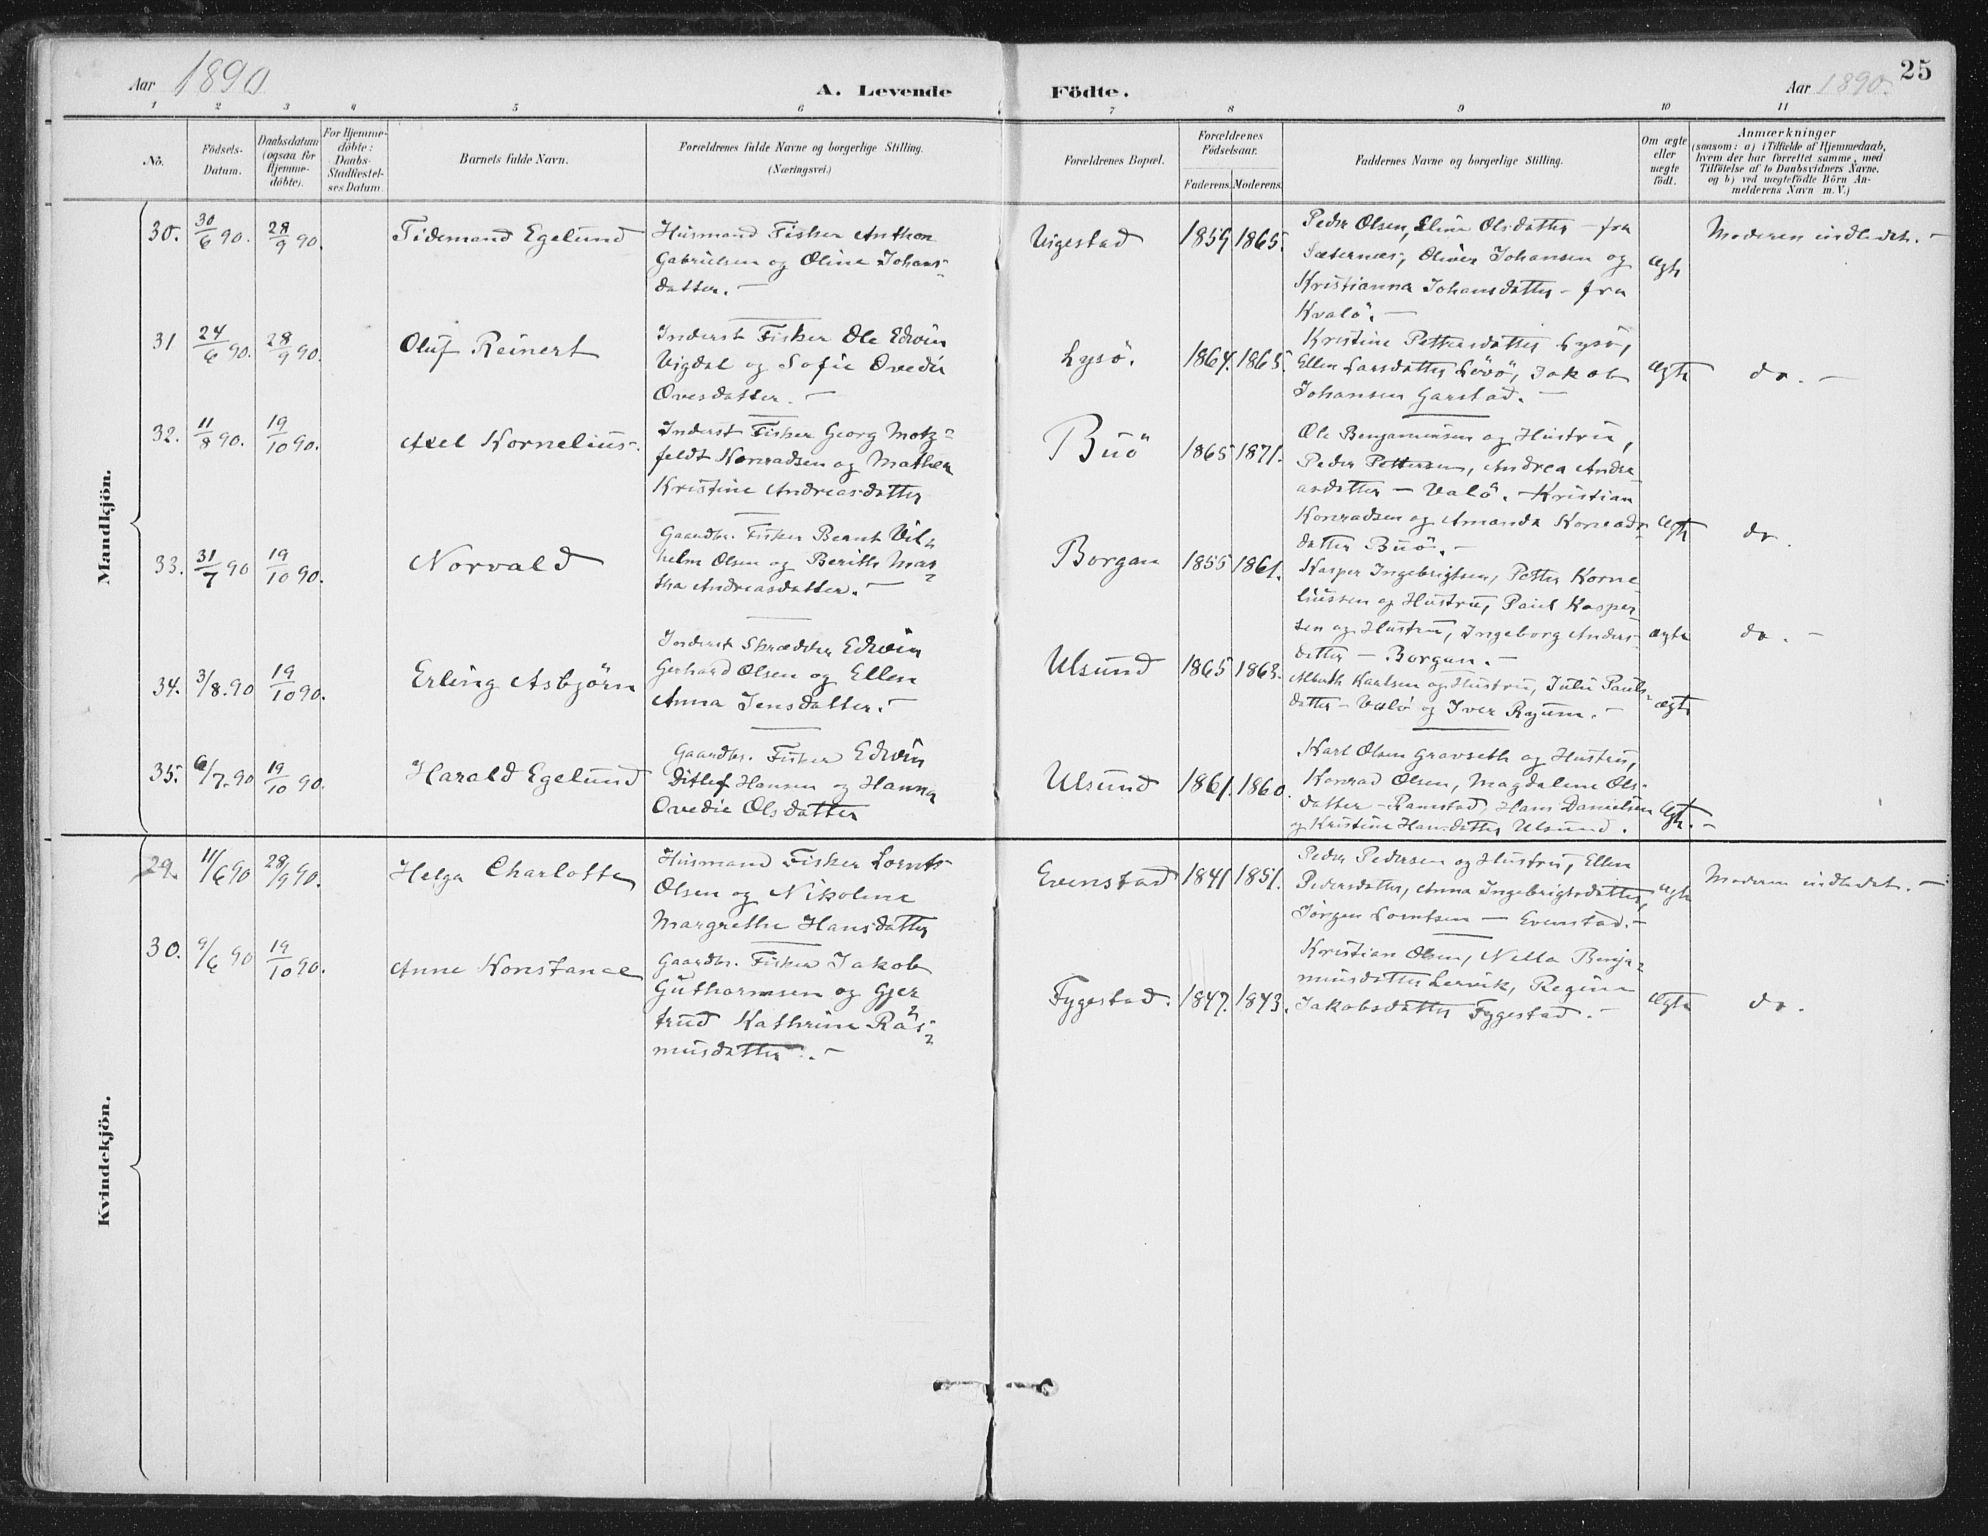 Aar 1890
A. Levende Födte.
Aar 1890.
25
1 2 3 4 5 6 7 8 9 10 11
No.
Födsels-
Datum.
Daabsdatum
(ogsaa for
Hjemme-
döbte).
For Hjemme-
döbte:
Daabs-
Stadfæstel-
ses Datum.
Barnets fulde Navn.
Forældrenes fulde Navne og borgerlige Stilling.
(Næringsvei.)
Forældrenes Bopæl.
Forældrenes
Födselsaar.
Faderens. Moderens.
Faddernes Navne og borgerlige Stilling.
Om ægte
eller
uægte
födt.
Anmærkninger
(saasom: a) i Tilfælde af Hjemmedaab,
hvem der har forrettet samme, med
Tilföielse af to Daabsvidners Navne,
og b) ved uægtefödte Börn An-
melderens Navn m. V.)
Mandkjön.
30. 30/6 90. 28/9 90. Tidemand Egelund
Husmand Fisker Anthon
Gabrielsen og Oline Johans-
datter. -
Vigestad 1859 1865.
Peder Olsen, Eline Olsdatter - fra
Sæternes, Oliver Johansen og
Kristianna Johansdatter - fra
Kvalö. -
Ægte
Moderen indledet. -
31 24/6 90. 28/9 90. Oluf Reinert
Inderst Fisker Ole Edvin
Vigdal og Sofie Ovedie
Ovesdatter. -
Lysö. 1864. 1865.
Kristine Pettersdatter Lysö,
Ellen Larsdatter Lövö, Jakob
Johansen Garstad. -
Ægte do. -
32. 11/8 90. 19/10 90. Axel Kornelius.
Inderst Fisker Georg Motz-
feldt Konradsen og Mathea
Kristine Andreasdatter
Buö 1865 1871.
Ole Benjaminsen og Hustru,
Peder Pettersen, Andrea Andre
asdatter - Valö. - Kristian
Konradsen og Amanda Konrads-
datter Buö. -
Ægte do.
33. 31/7 90 19/10 90. Norvald
Gaardbr. Fisker Bernt Vil-
helm Olsen og Berith Mar-
tha Andreasdatter. -
Borgan 1855 1861.
Kasper Ingebrigtsen, Petter Korne
liussen og Hustru, Paul Kasper-
sen og Hustru, Ingeborg Anders-
datter - Borgan. -
ægte do. -
34. 3/8. 90 19/10 90. Erling Asbjörn
Inderst Skrædder Edvin
Gerhard Olsen og Ellen
Anna Jensdatter. -
Ulsund 1865 1863.
Albert Karlsen og Hustru, Julie Pauls-
datter - Valö og Iver Ryum. -
ægte
35. 6/7. 90 19/10 90. Harald Egelund
Gaardbr. Fisker Edvin
Ditlef Hansen og Hanna
Ovedie Olsdatter
Ulsund 1861. 1860.
Karl Olsen Gravseth og Hustru,
Konrad Olsen, Magdalene Ols-
datter - Ramstad, Hans Danielsen
og Kristine Hansdatter Ulsund.
Ægte. -
Kvindekjön.
29. 11/6 90 28/9 90. Helga Charlotte
Husmand Fisker Lornts
Olsen og Nikoline
Margrethe Hansdatter
Evenstad 1841 1851.
Peder Pedersen og Hustru, Ellen
Pedersdatter, Anna Ingebrigtsdatter,
Jörgen Lorntsen - Evenstad. -
Ægte
Moderen indledet. -
30. 9/6 90 19/10 90. Anne Konstance
Gaardbr. Fisker Jakob
Guthormsen og Gjer
trud Kathrine Ras-
musdatter. -
Fygestad. 1847. 1843.
Kristian Olsen, Nella Benja-
minsdatter Lervik, Regine
Jakobsdatter Fygestad. -
Ægte do.